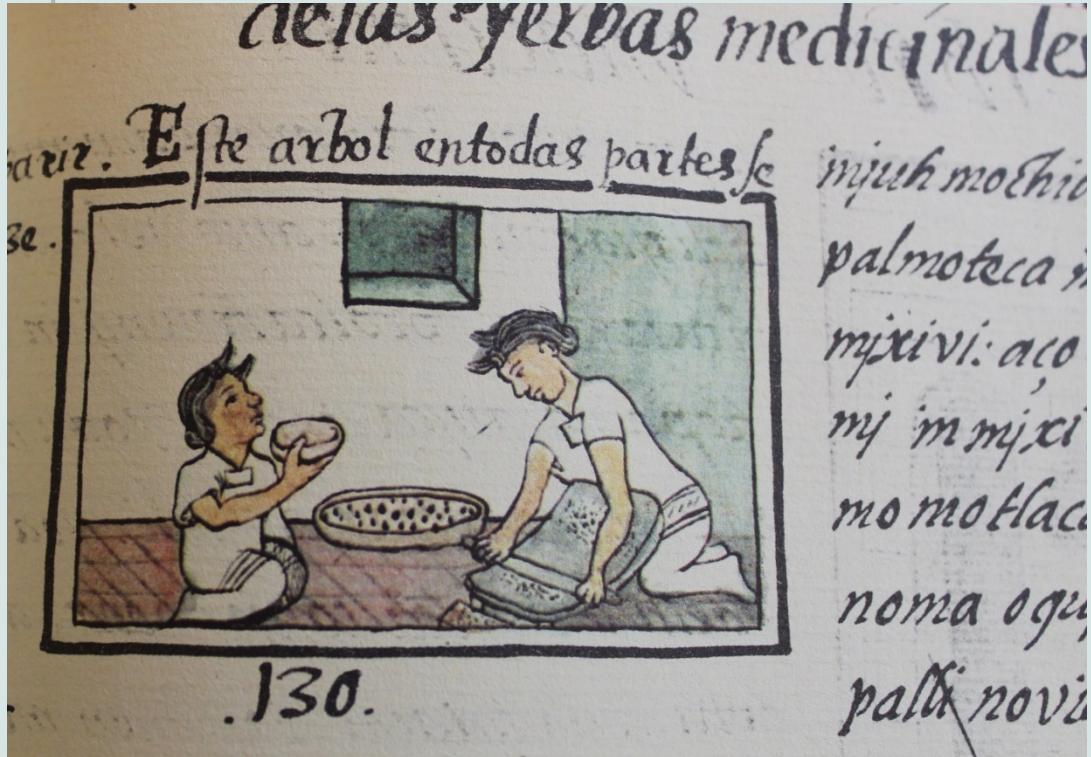 delas yerbas medicinales
parir. Este arbol entodas partes se
ze.
.130.
injuh mochiu
palmoteca
mjxivi: aço
mj in mjxi
mo motlac
noma oqu
palli novi